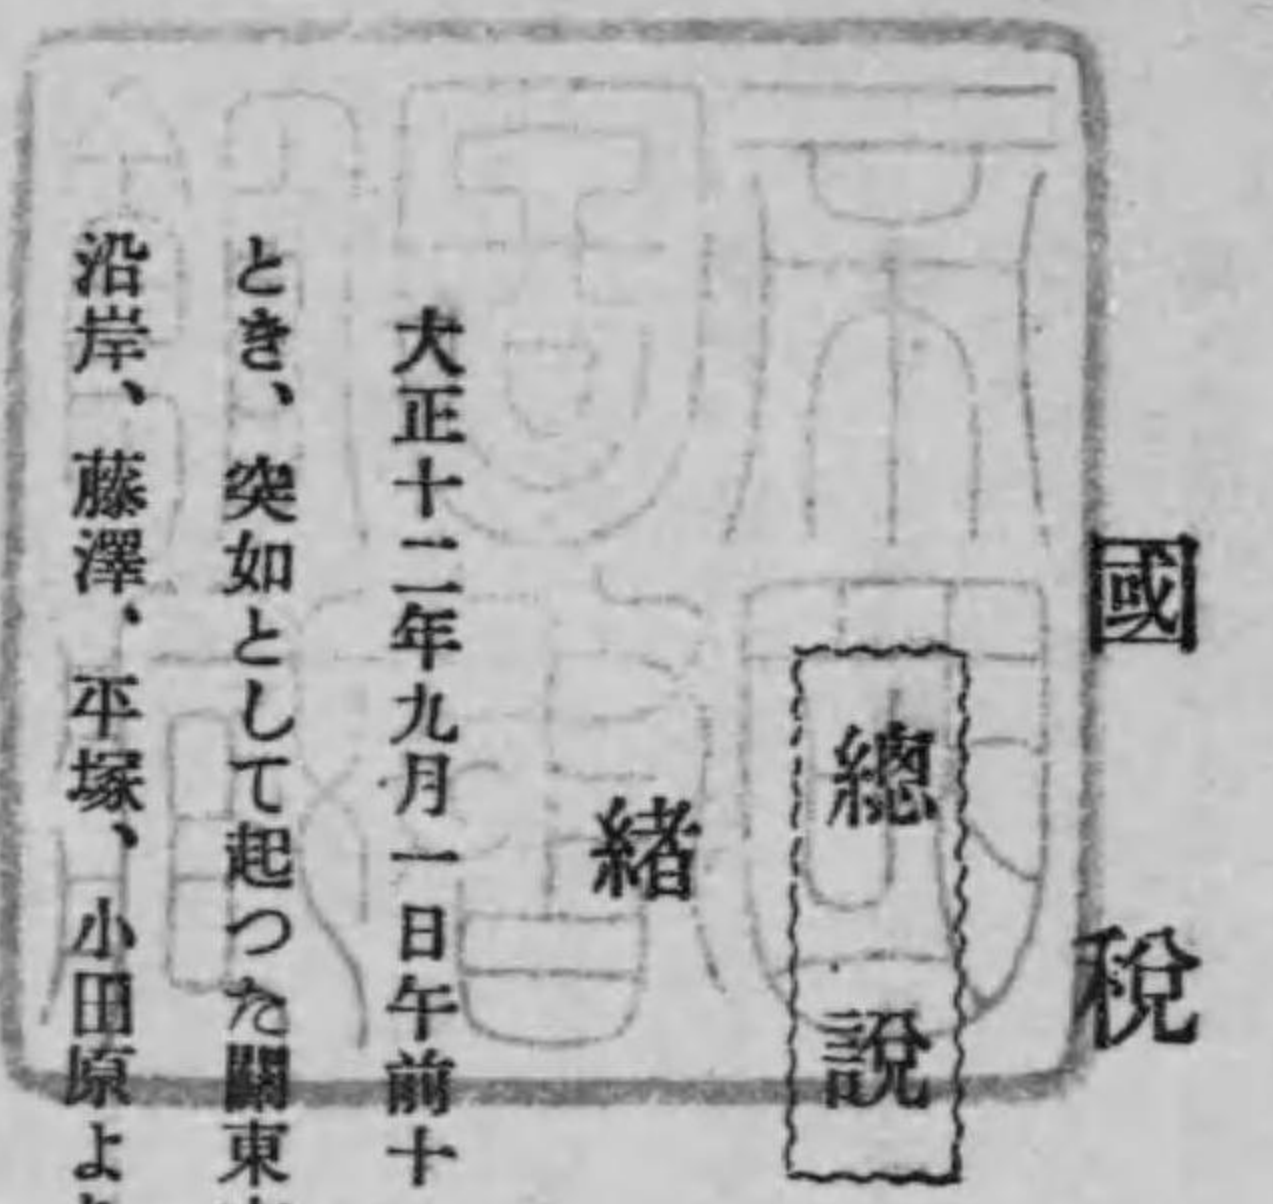 國稅
總說
緒
大正十二年九月一日午前十
とき、突如として起つた關東
沿岸、藤澤、平塚、小田原よ